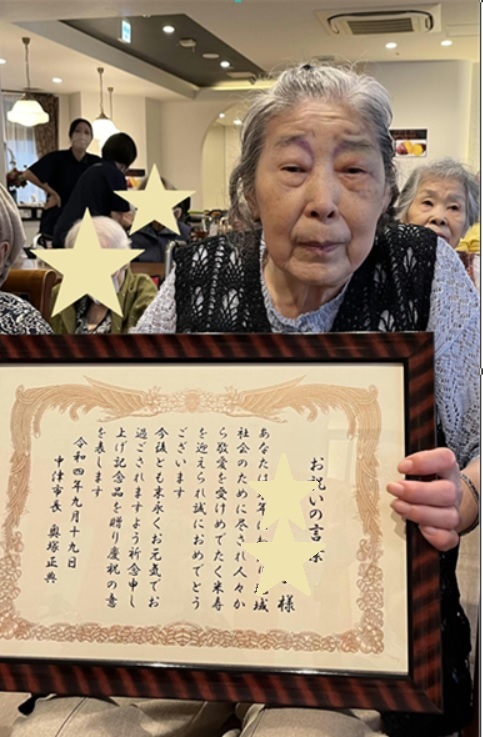 お祝いの言葉
様
あなたは年に地域
社会のために尽され人々か
ら敬愛を受けめでたく米寿
を迎えられ誠におめでとう
ございます
今後とも末永くお元気でお
過ごされますよう祈念申し
上げ記念品を贈り慶祝の意
を表します
令和四年九月十九日
中津市長 奥塚正典